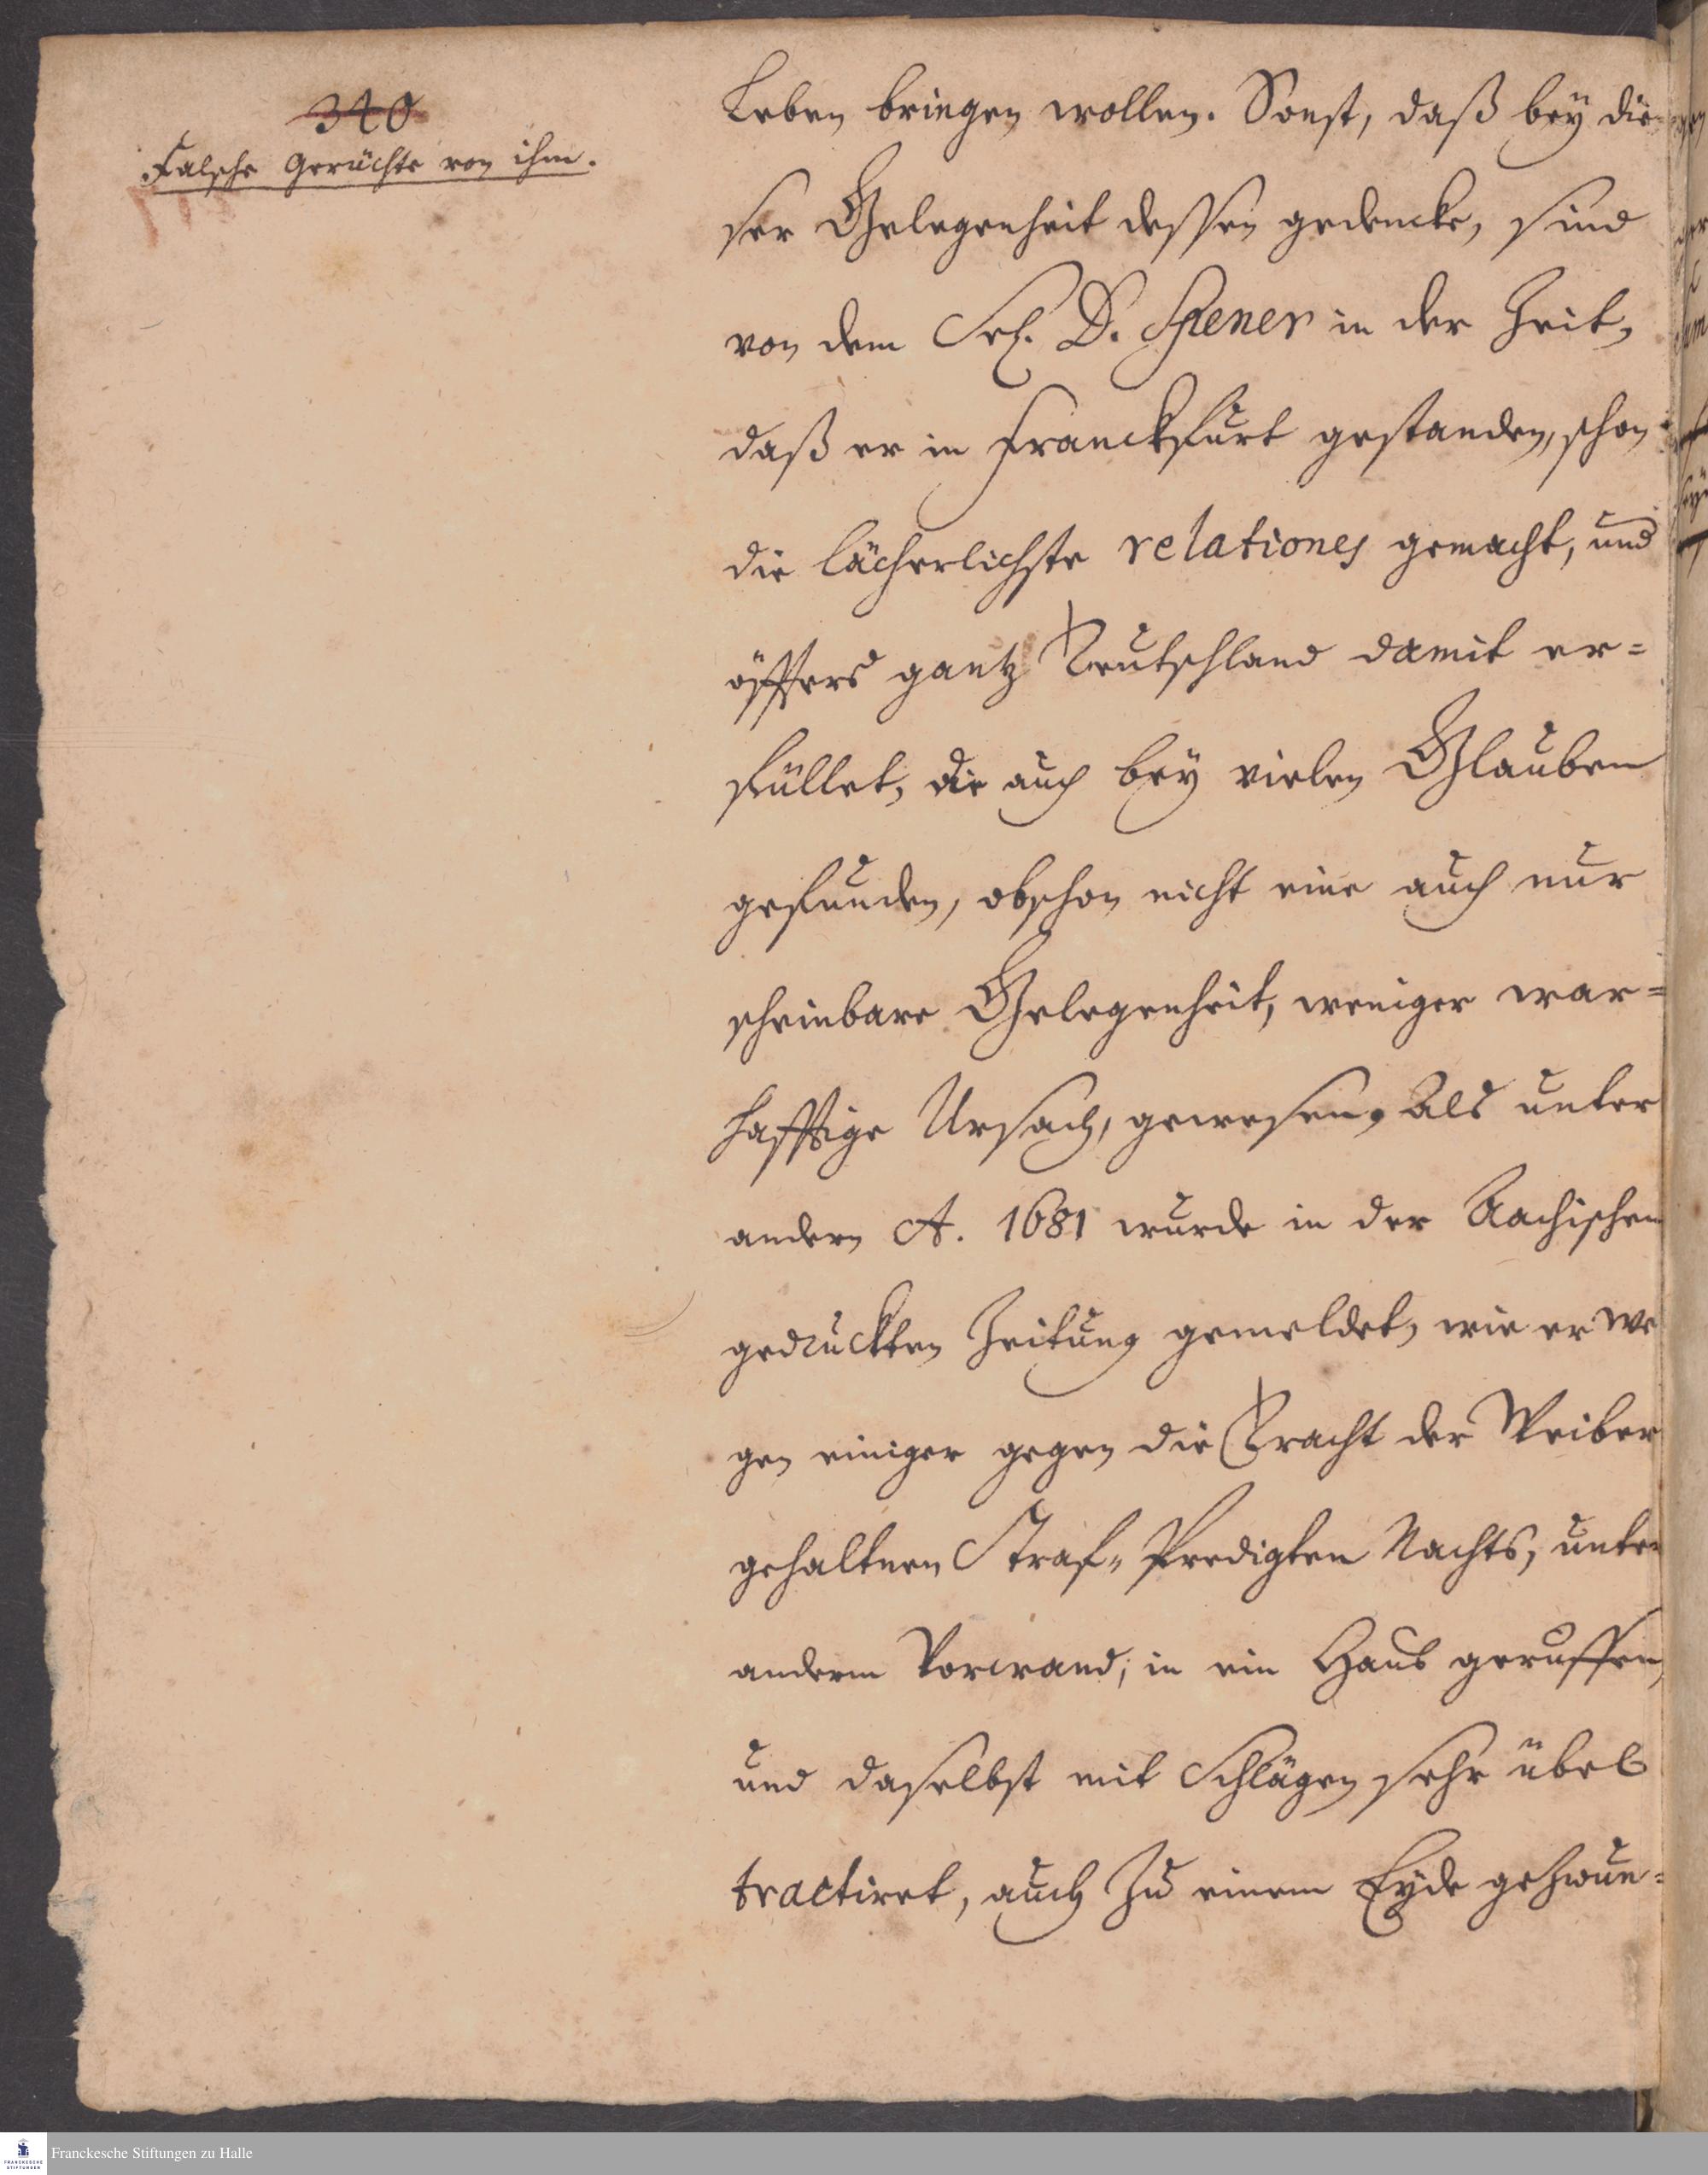 340
Falsche Gerüchte von ihm.
Leben bringen wollen. Sonst, daß bey die-
ser Gelegenheit dessen gedencke, sind
von dem Sel. D. Spener in der Zeit,
daß er in Franckfurt gestanden, schon
die lächerlichste relationes gemacht, und
öffters gantz Teutschland damit er=
füllet, die auch bey vielen Glauben
gefunden, obschon nicht eine auch nur
scheinbare Gelegenheit, weniger war=
hafftige Ursach, gewesen, Als unter
andern A. 1681 wurde in der Aachischen
gedruckten Zeitung gemeldet, wie er we
gen einiger gegen die Tracht der Weiber
gehaltnen Straf-Predigten Nachts, unter
anderm Vorwand, in ein Haus geruffen,
und daselbst mit Schlägen sehr übel
tractiret, auch zu einem Eyde gezwun=
Franckesche Stiftungen zu Halle